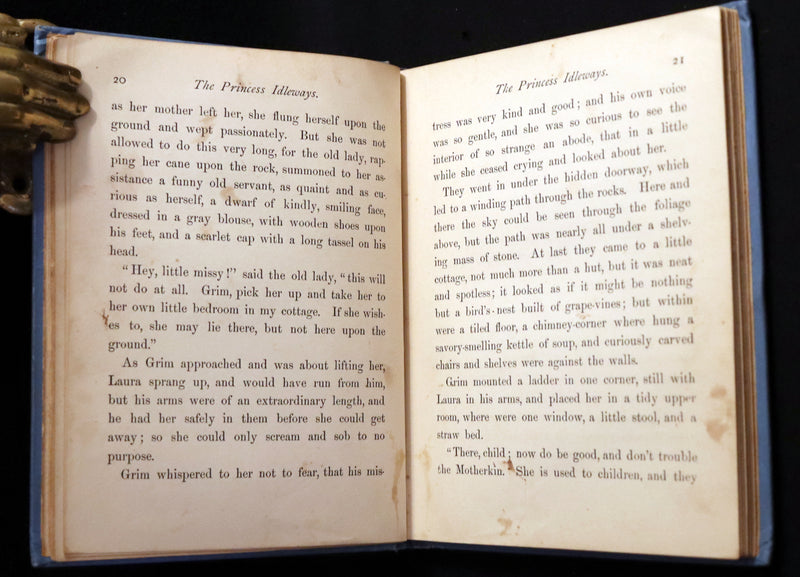 20
The Princess Idleways.
as her mother left her, she flung herself upon the
ground and wept passionately. But she was not
allowed to do this very long, for the old lady, rap-
ping her cane upon the rock, summoned to her as-
sistance a funny old servant, as quaint and as cu-
rious as herself, a dwarf of kindly, smiling face,
dressed in a gray blouse, with wooden shoes upon
his feet, and a scarlet cap with a long tassel on his
head.
"Hey, little missy!" said the old lady, "this will
not do at all. Grim, pick her up and take her to
her own little bedroom in my cottage. If she wish-
es to, she may lie there, but not here upon the
ground."
As Grim approached and was about lifting her,
Laura sprang up, and would have run from him,
but his arms were of an extraordinary length, and
he had her safely in them before she could get
away; so she could only scream and sob to no
purpose.
Grim whispered to her not to fear, that his mis-
The Princess Idleways.
21
tress was very kind and good; and his own voice
was so gentle, and she was so curious to see the
interior of so strange an abode, that in a little
while she ceased crying and looked about her.
They went in under the hidden doorway, which
led to a winding path through the rocks. Here and
there the sky could be seen through the foliage
above, but the path was nearly all under a shelv-
ing mass of stone. At last they came to a little
cottage, not much more than a hut, but it was neat
and spotless; it looked as if it might be nothing
but a bird's-nest built of grape-vines; but within
were a tiled floor, a chimney-corner where hung a
savory-smelling kettle of soup, and curiously carved
chairs and shelves were against the walls.
Grim mounted a ladder in one corner, still with
Laura in his arms, and placed her in a tidy upper
room, where were one window, a little stool, and a
straw bed.
"There, child; now do be good, and don't trouble
the Motherkin. She is used to children, and they